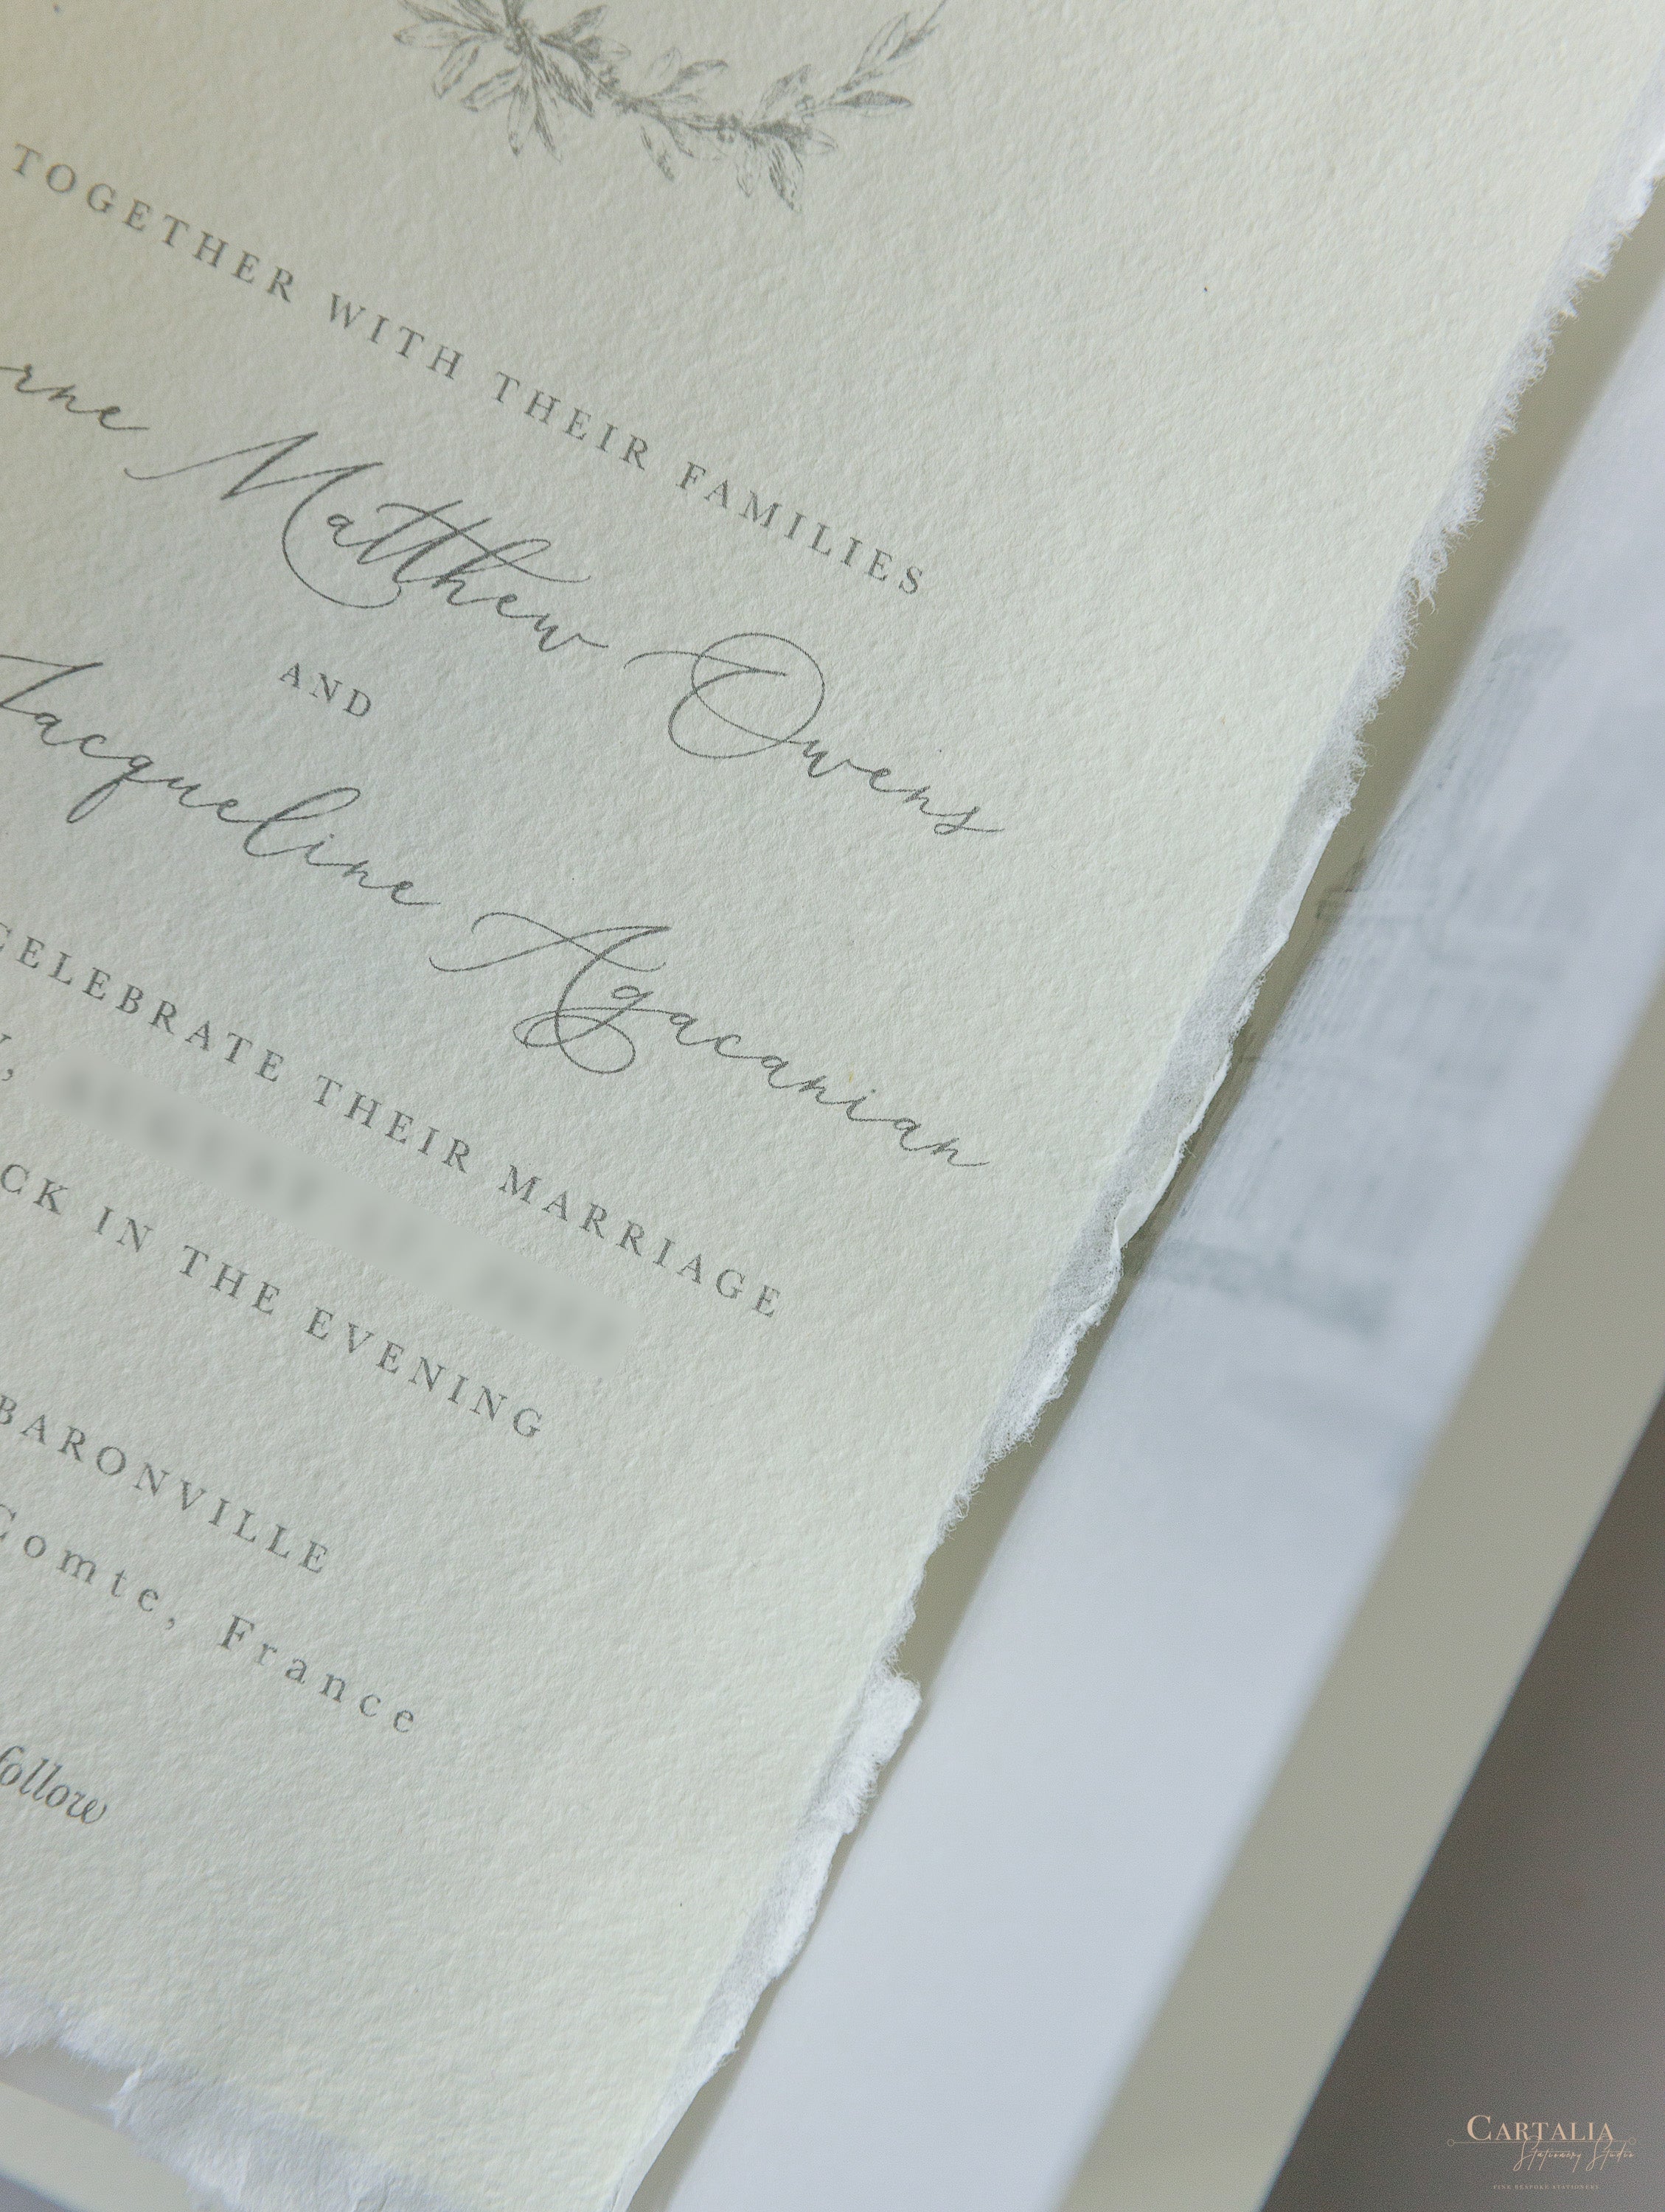 TOGETHER WITH THEIR FAMILIES
rne Matthew Owens
AND
Jacqueline Agacanian
CELEBRATE THEIR MARRIAGE
CK IN THE EVENING
BARONVILLE
Comte, France
follow
CARTALIA
Stationery Studio
FINE BESPOKE STATIONERY